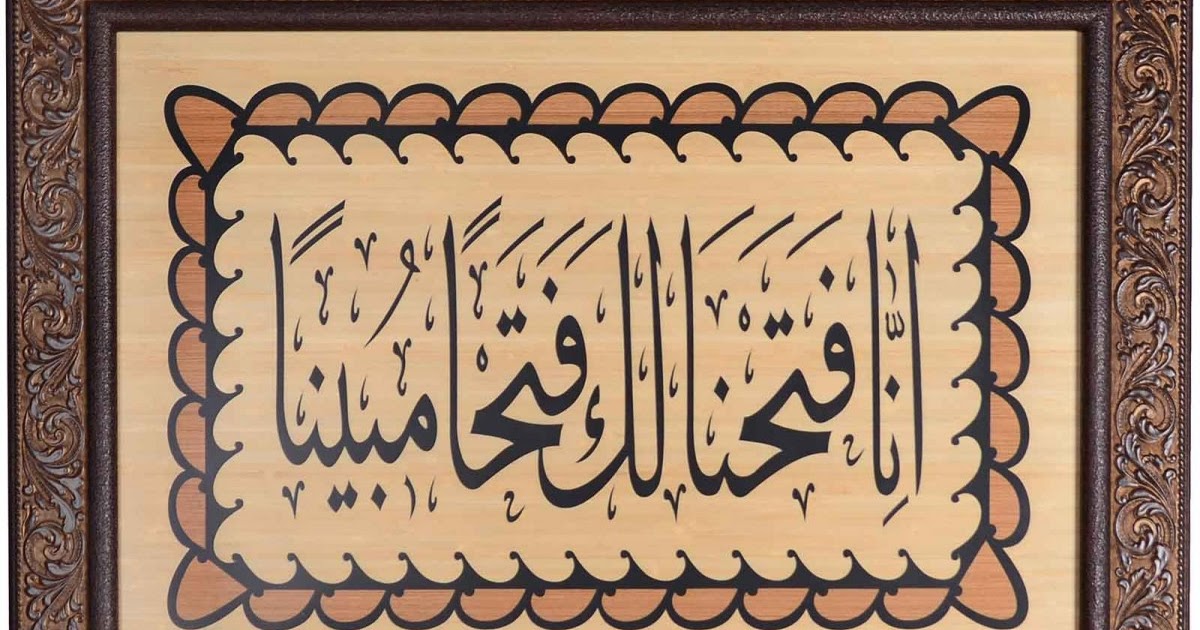 اِنَّا فَتَحْنَا لَكَ فَتَحْاً مُبٖيناً